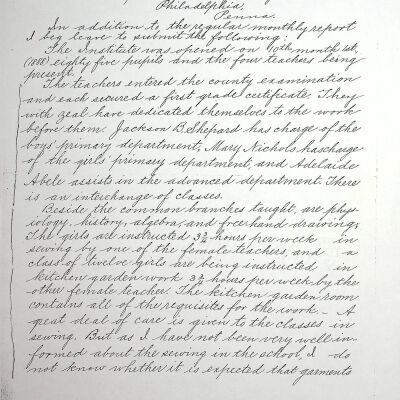 Philadelphia,
Penna.
In addition to the regular monthly report
I beg leave to submit the following:
The Institute was opened on 10th month 1st,
(1888) eighty five pupils and the four teachers being
present.
The teachers entered the county examination
and each secured a first grade certificate. They
with zeal have dedicated themselves to the work
before them. Jackson B. Shepard has charge of the
boys' primary department, Mary Nichols has charge
of the girls' primary department, and Adelaide
Abele assists in the advanced department. There
is an interchange of classes.
Beside the common branches taught, are phys-
iology, history, algebra, and free hand drawing.
The girls are instructed 3¾ hours per week in
sewing by one of the female teachers, and a
class of twelve girls are being instructed in
kitchen garden work 3¾ hours per week by the
other female teacher. The kitchen garden room
contains all of the requisites for the work. - A
great deal of care is given to the classes in
sewing. But as I have not been very well in-
formed about the sewing in the school, I do
not know whether it is expected that garments